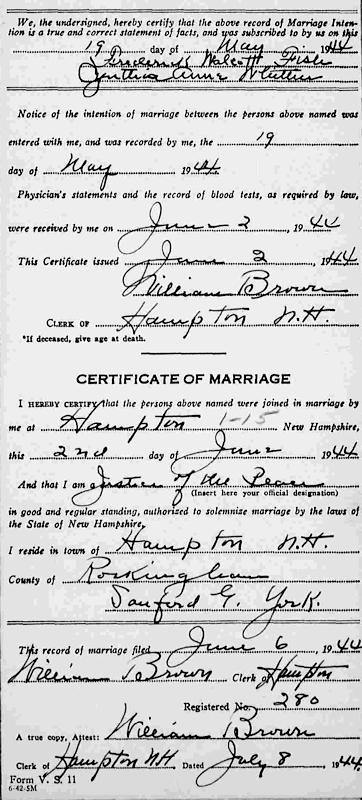 We, the undersigned, hereby certify that the above record of Marriage Inten-
tion is a true and correct statement of facts, and was subscribed to by us on this
19 day of May 1944
Frederick Walcott Fisk
Cynthia Anne Whittier
Notice of the intention of marriage between the persons above named was
entered with me, and was recorded by me, the 19
day of May 1944
Physician's statements and the record of blood tests, as required by law,
were received by me on June 2, 1944
This Certificate issued June 2 1944
William Brown
CLERK OF Hampton N.H.
*If deceased, give age at death.
CERTIFICATE OF MARRIAGE
I HEREBY CERTIFY that the persons above named were joined in marriage by
me at Hampton 1-15 New Hampshire,
this 2nd day of June 1944
And that I am Justice of the Peace
(Insert here your official designation)
in good and regular standing, authorized to solemnize marriage by the laws of
the State of New Hampshire,
I reside in town of Hampton N.H.
County of Rockingham
Sanford G. York.
This record of marriage filed June 6, 1944
William Brown Clerk of Hampton
Registered No. 280
A true copy, Attest: William Brown
Clerk of Hampton NH. Dated July 8, 1944
Form V. S. 11
6-42-5M